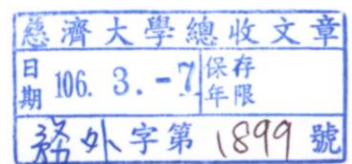 慈濟大學總收文章
日期 106. 3. -7 保存年限
務外字第 1899 號